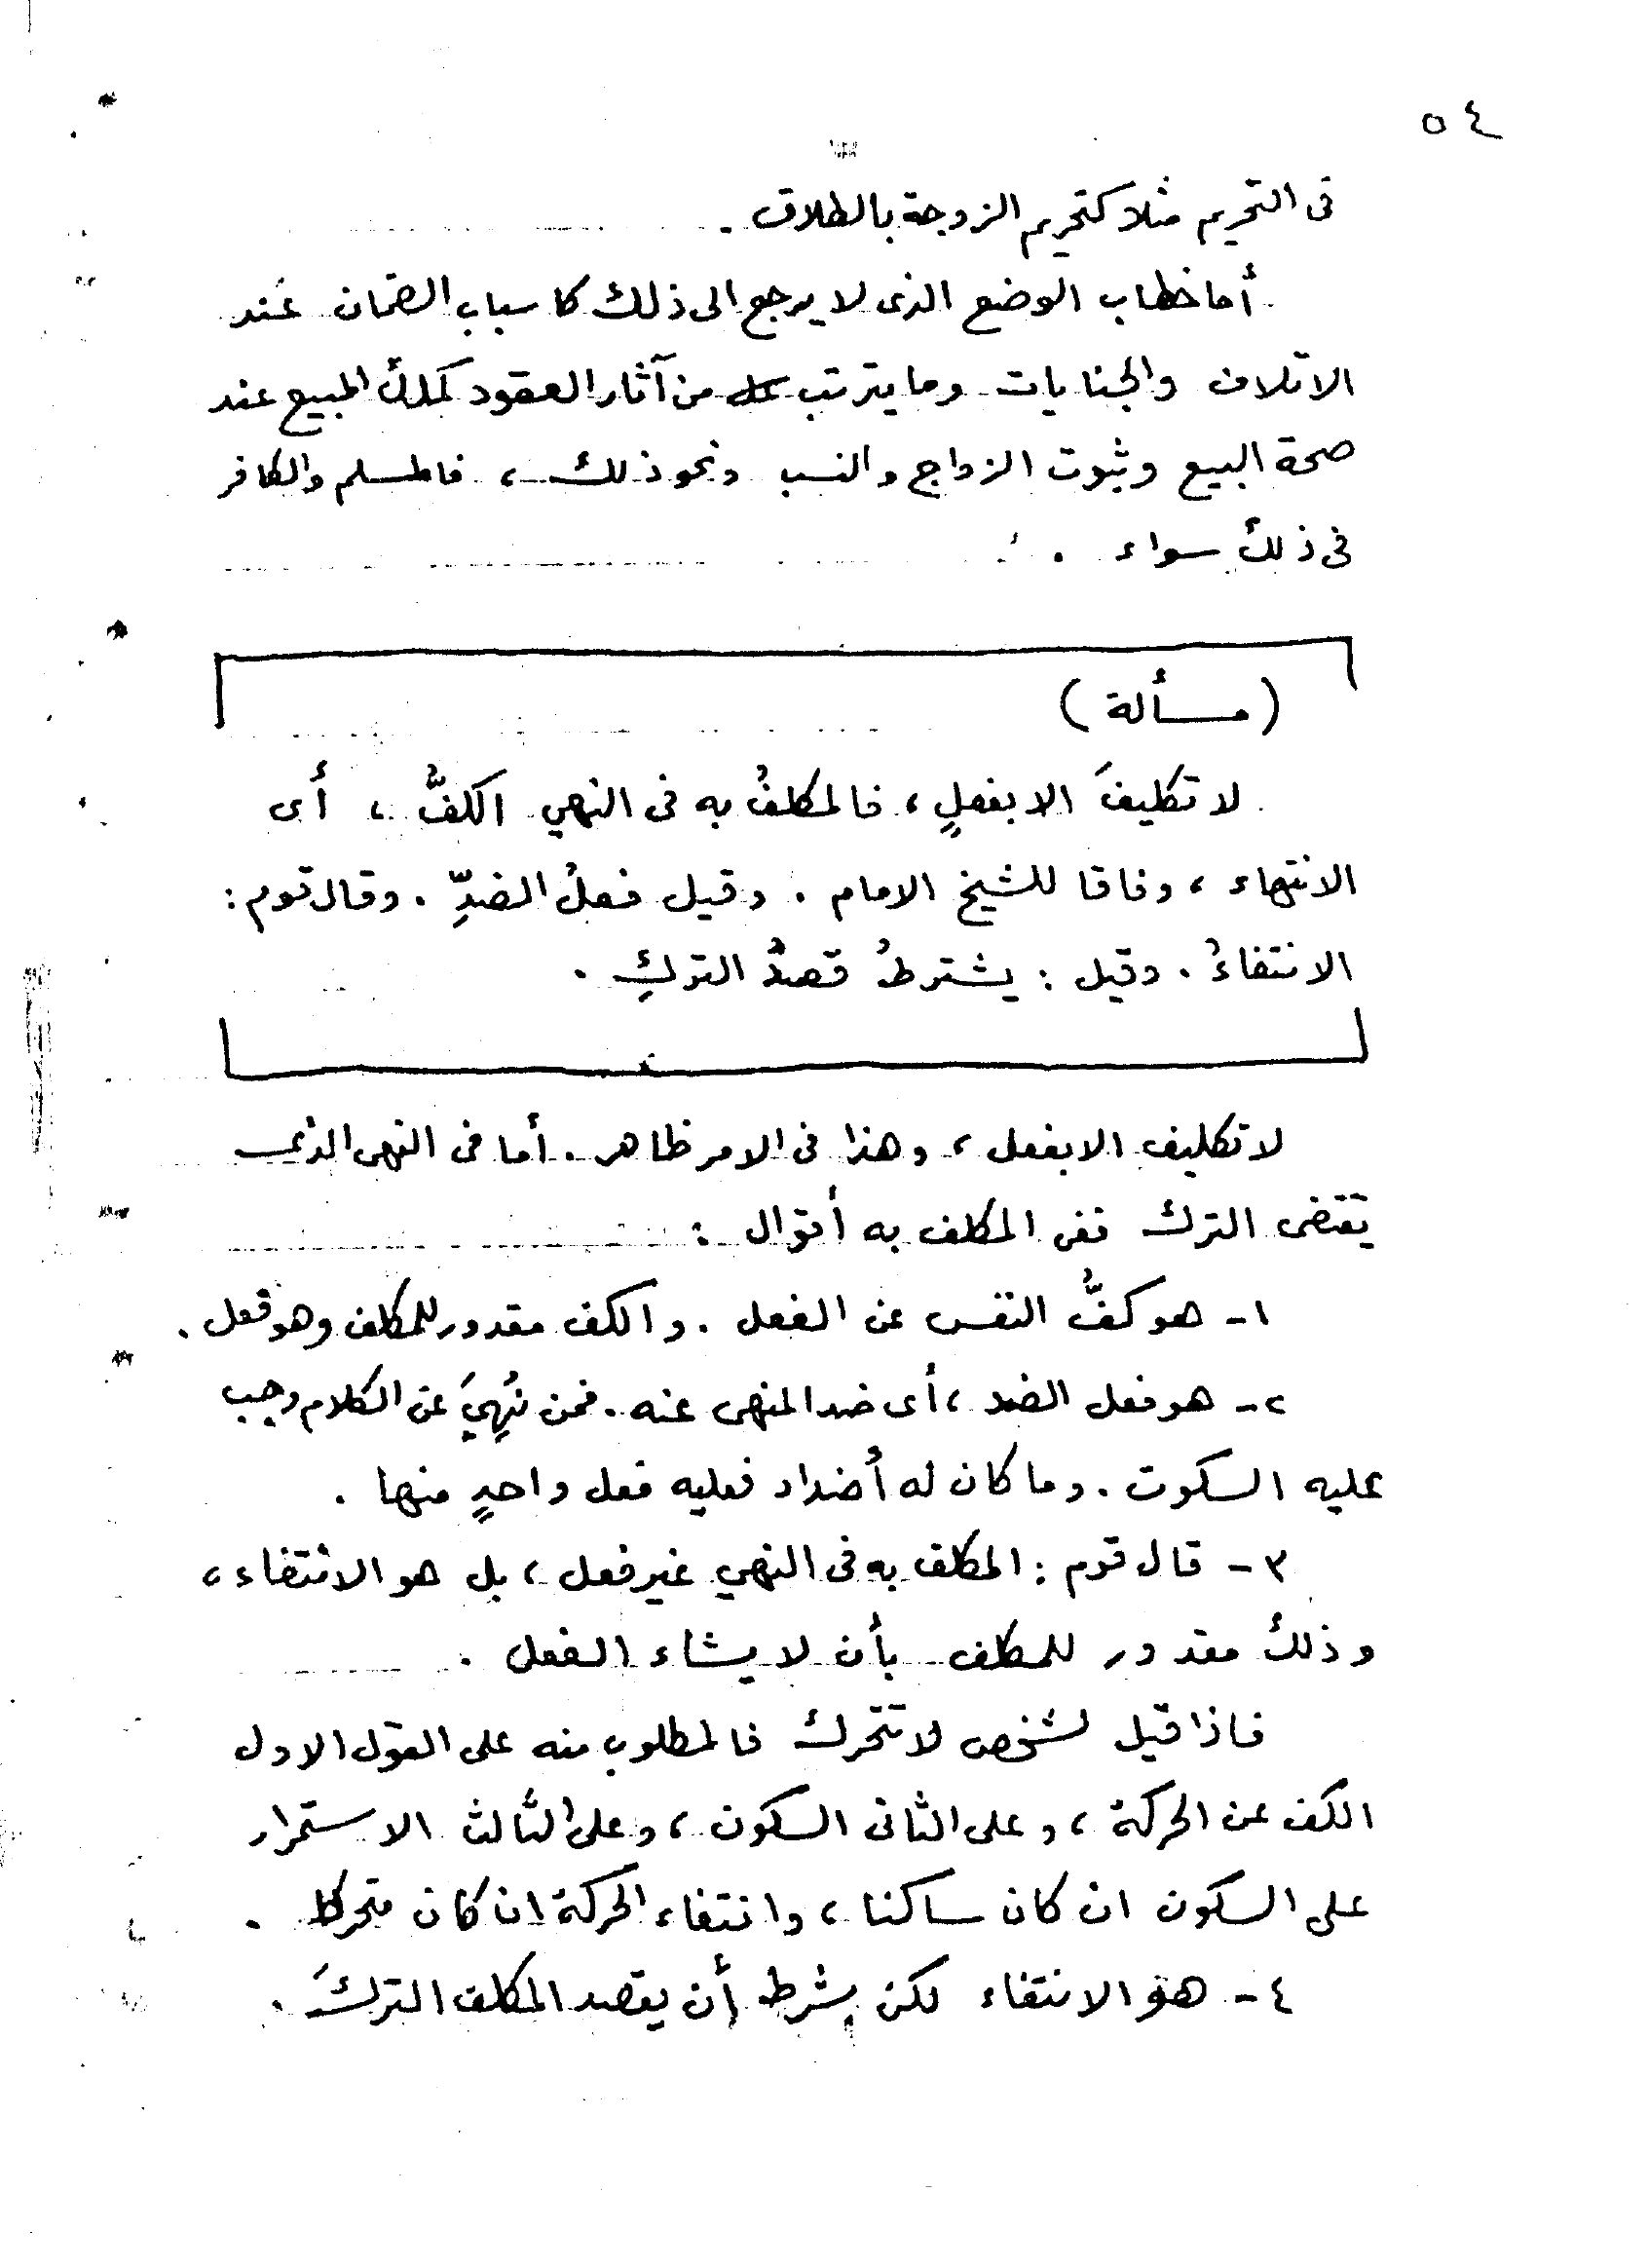 ٥٤
فى التحريم مثلا كتحريم الزوجة بالطلاق .
أما خطاب الوضع الذى لا يرجع الى ذلك كاسباب الضمان عند
الاتلاف والجنايات وما يترتب من آثار العقود كملك المبيع عند
صحة البيع وثبوت الزواج والنسب ونحو ذلك ، فالمسلم والكافر
فى ذلك سواء .
( مسألة )
لا تكليفَ الا بفعلٍ ، فالمكلفُ به فى النهي الكفُّ ، أى
الانتهاء ، وفاقا للشيخ الامام . وقيل فعلُ الضدِّ . وقال قوم :
الانتفاءُ . وقيل : يشترطُ قصدُ التركِ .
لا تكليف الا بفعل ، وهذا فى الامر ظاهر . أما فى النهى الذى
يقتضى الترك ففى المكلف به أقوال :
١- هو كفُّ النفس عن الفعل . والكف مقدور للمكلف وهو فعل .
٢- هو فعل الضد ، أى ضد المنهى عنه . فمن نُهِيَ عن الكلام وجب
عليه السكوت . وما كان له أضداد فعليه فعل واحدٍ منها .
٣- قال قوم : المكلف به فى النهي غير فعل ، بل هو الانتفاء ،
وذلك مقدور للمكلف بأن لا يشاء الفعل .
فاذا قيل لشخص لا تتحرك فالمطلوب منه على القول الاول
الكف عن الحركة ، وعلى الثانى السكون ، وعلى الثالث الاستمرار
على السكون ان كان ساكنا ، وانتفاء الحركة ان كان متحركا .
٤- هو الانتفاء لكن بشرط أن يقصد المكلف التركَ .